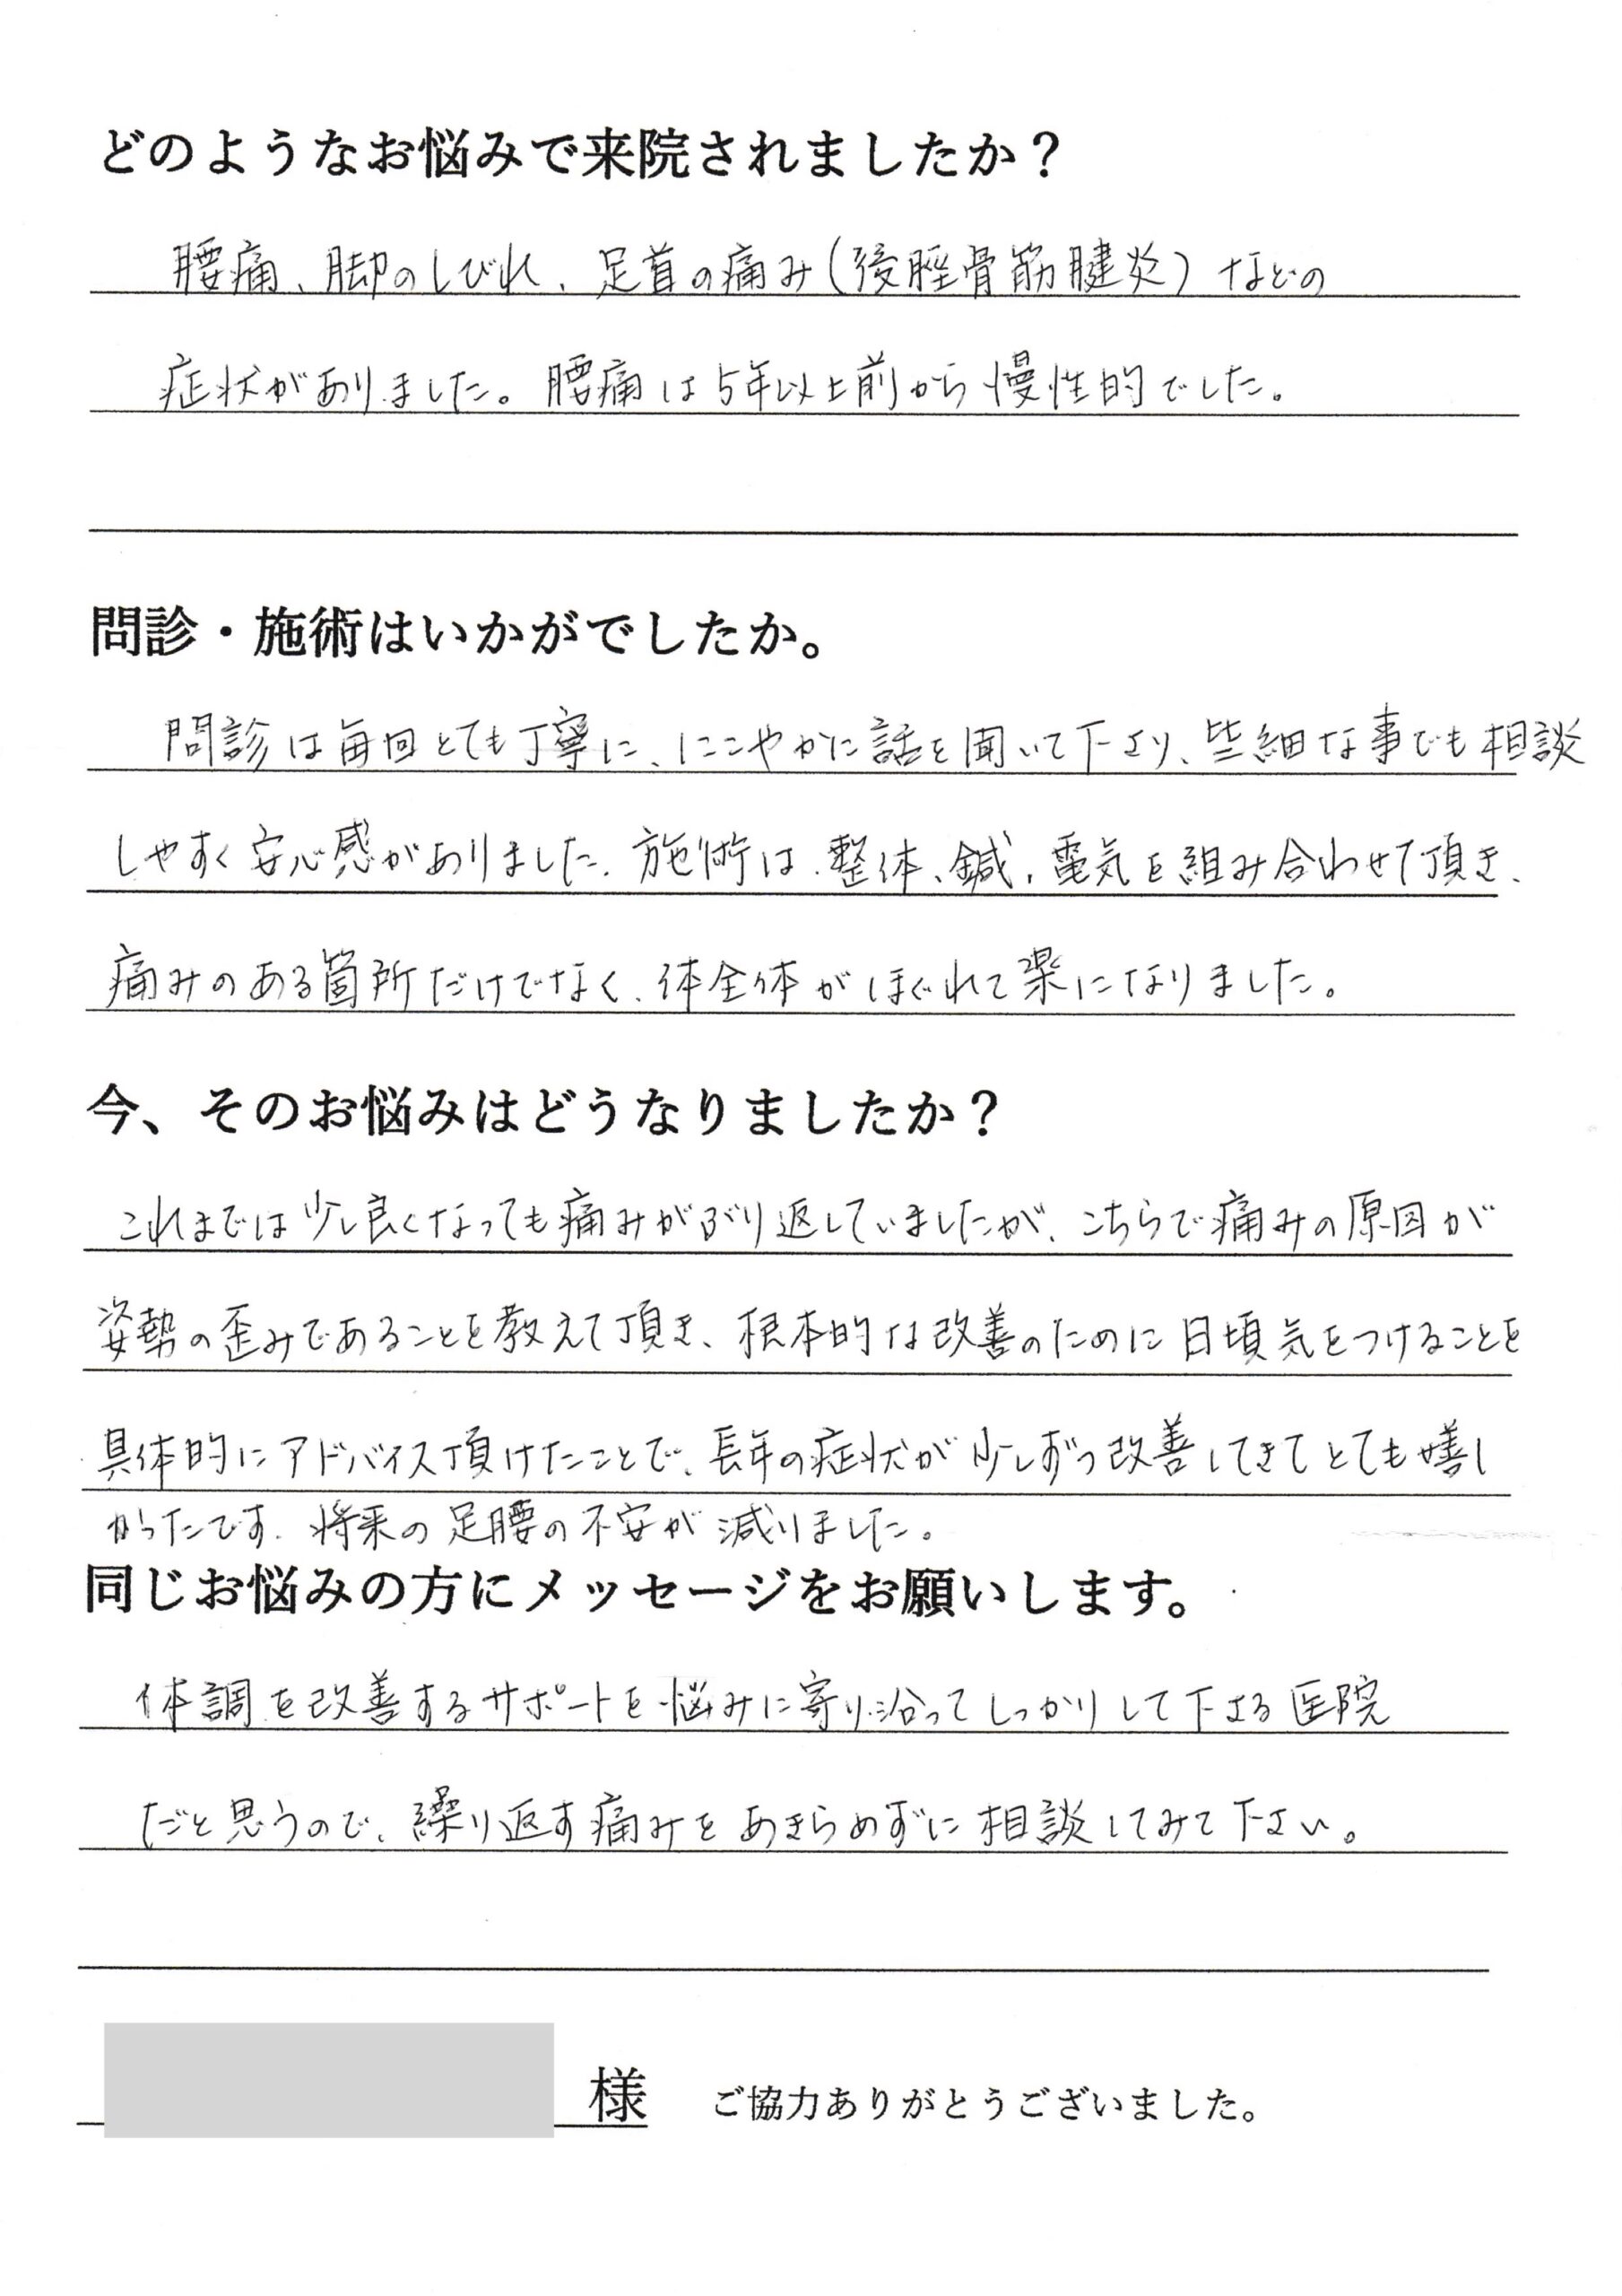 どのようなお悩みで来院されましたか？
腰痛、脚のしびれ、足首の痛み(後脛骨筋腱炎)などの
症状がありました。腰痛は5年以上前から慢性的でした。
問診・施術はいかがでしたか。
問診は毎回とても丁寧に、にこやかに話を聞いて下さり、些細な事でも相談
しやすく安心感がありました。施術は、整体、鍼、電気を組み合わせて頂き、
痛みのある箇所だけでなく、体全体がほぐれて楽になりました。
今、そのお悩みはどうなりましたか？
これまでは少し良くなっても痛みがぶり返していましたが、こちらで痛みの原因が
姿勢の歪みであることを教えて頂き、根本的な改善のために日頃気をつけることを
具体的にアドバイス頂けたことで、長年の症状が少しずつ改善してきてとても嬉し
かったです。将来の足腰の不安が減りました。
同じお悩みの方にメッセージをお願いします。
体調を改善するサポートを悩みに寄り沿ってしっかりして下さる医院
だと思うので、繰り返す痛みをあきらめずに相談してみて下さい。
様 ご協力ありがとうございました。